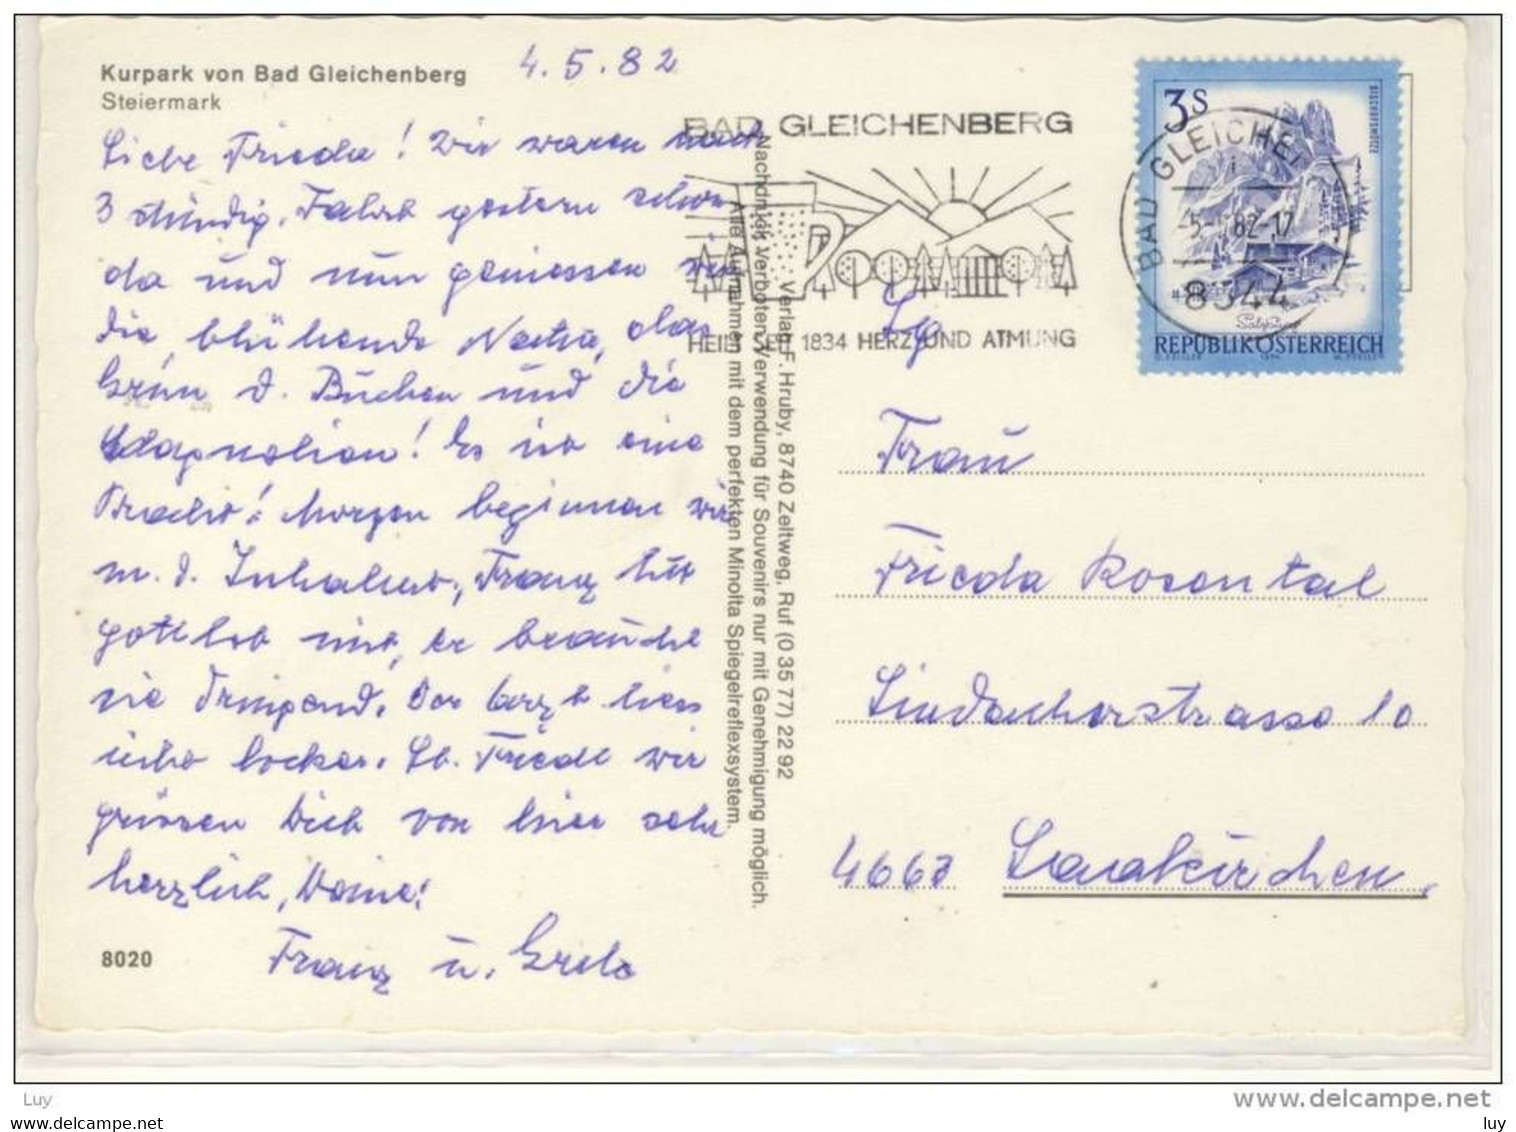 Kurpark von Bad Gleichenberg
Steiermark
4.5.82
Liebe Frieda! Wir waren nach
3 stündig. Fahrt gestern schon
da und nun geniessen wir
die blühende Natur, das
Grün d. Buchen und die
Magnolien! Es ist eine
Pracht! Morgen beginnen wir
m. d. Inhalier., Franz hilft
gottlob mit, er braucht
sie dringend. Der Arzt liess
nicht locker. Lb. Friedl wir
grüssen Dich von hier sehr
herzlich, Deine!
Franz u. Grete
8020
Verlag F. Hruby, 8740 Zeltweg, Ruf (0 35 77) 22 92
Nachdruck verboten. Verwendung für Souvenirs nur mit Genehmigung möglich.
Alle Aufnahmen mit dem perfekten Minolta Spiegelreflexsystem.
BAD GLEICHENBERG
HEILT SEIT 1834 HERZ UND ATMUNG
3 S
BISCHOFSMÜTZE
Salzburg
REPUBLIK ÖSTERREICH
BAD GLEICHEN
82-17
8344
Frau
Frieda Rosental
Lindacherstrasse 10
4663 Laakirchen
Luy
www.delcampe.net
www.delcampe.net
luy